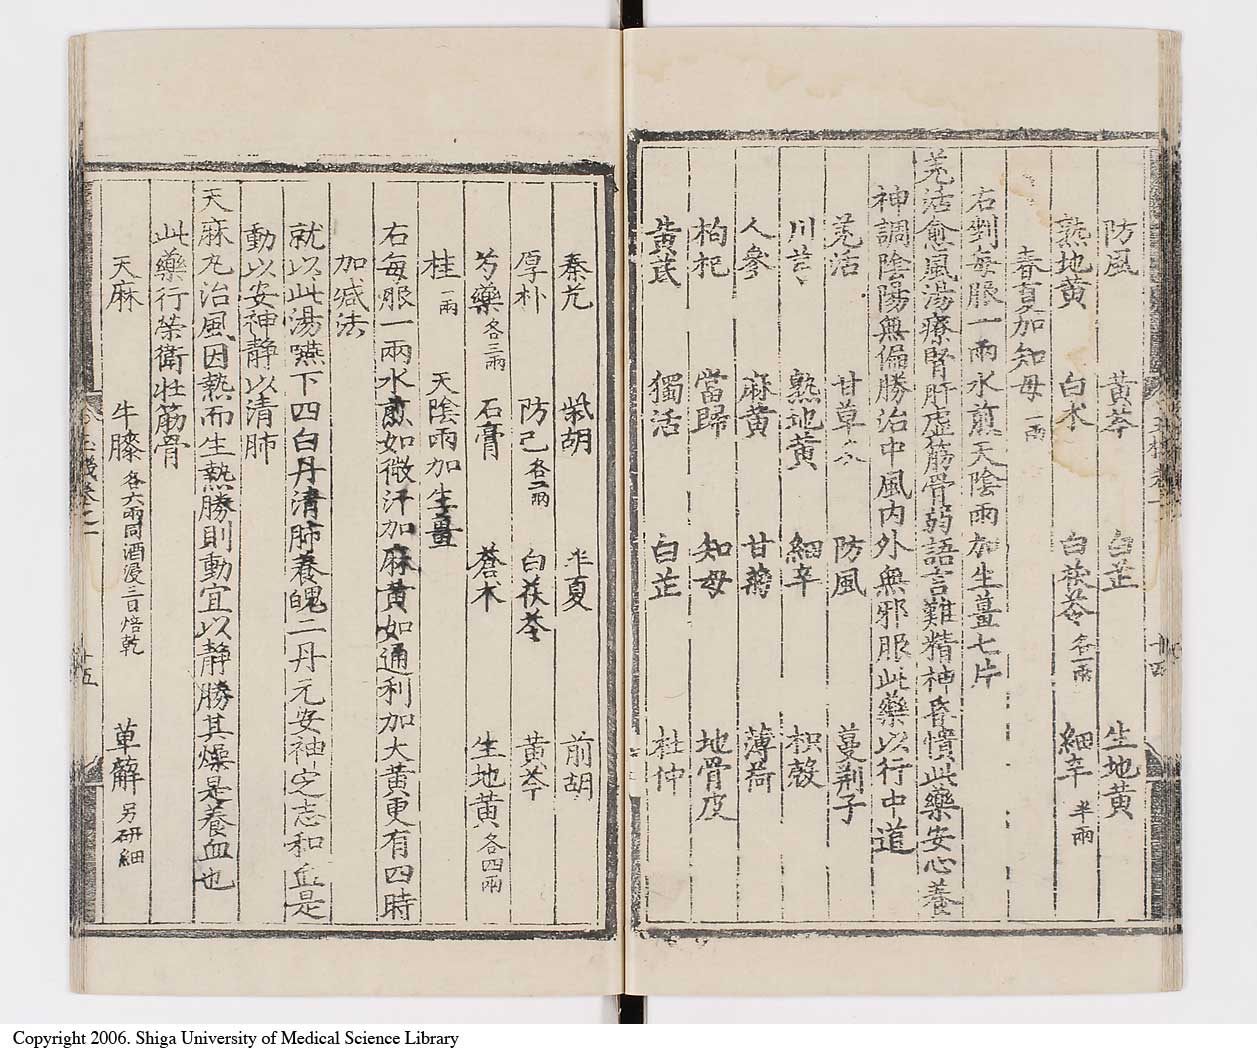 防風　黃芩　白芷　生地黃
熟地黄　白朮　白茯苓各一兩　細辛半兩
春夏加知母一兩
右剉每服一兩水煎天陰雨加生薑七片
羌活愈風湯療腎肝虛筋骨弱語言難精神昏憒此藥安心養
神調陰陽無偏勝治中風內外無邪服此藥以行中道
羌活　甘草　防風　蔓荊子
川芎　熟地黄　細辛　枳殼
人參　麻黃　甘菊　薄荷
枸杞　當歸　知母　地骨皮
黃茋　獨活　白芷　杜仲
秦艽　柴胡　半夏　前胡
厚朴　防己各二兩　白茯苓　黃芩
芍藥各三兩　石膏　蒼朮　生地黃各四兩
桂一兩　天陰雨加生薑
右每服一兩水煎如微汗加麻黃如通利加大黃更有四時
加減法
就以此湯嚥下四白丹清肺養魄二丹元安神定志和血是
動以安神静以清肺
天麻丸治風因熱而生熱勝則動宜以静勝其燥是養血也
此藥行榮衛壯筋骨
天麻　牛膝各六兩同酒浸三日焙乾　萆薢另研細
十五
Copyright 2006. Shiga University of Medical Science Library